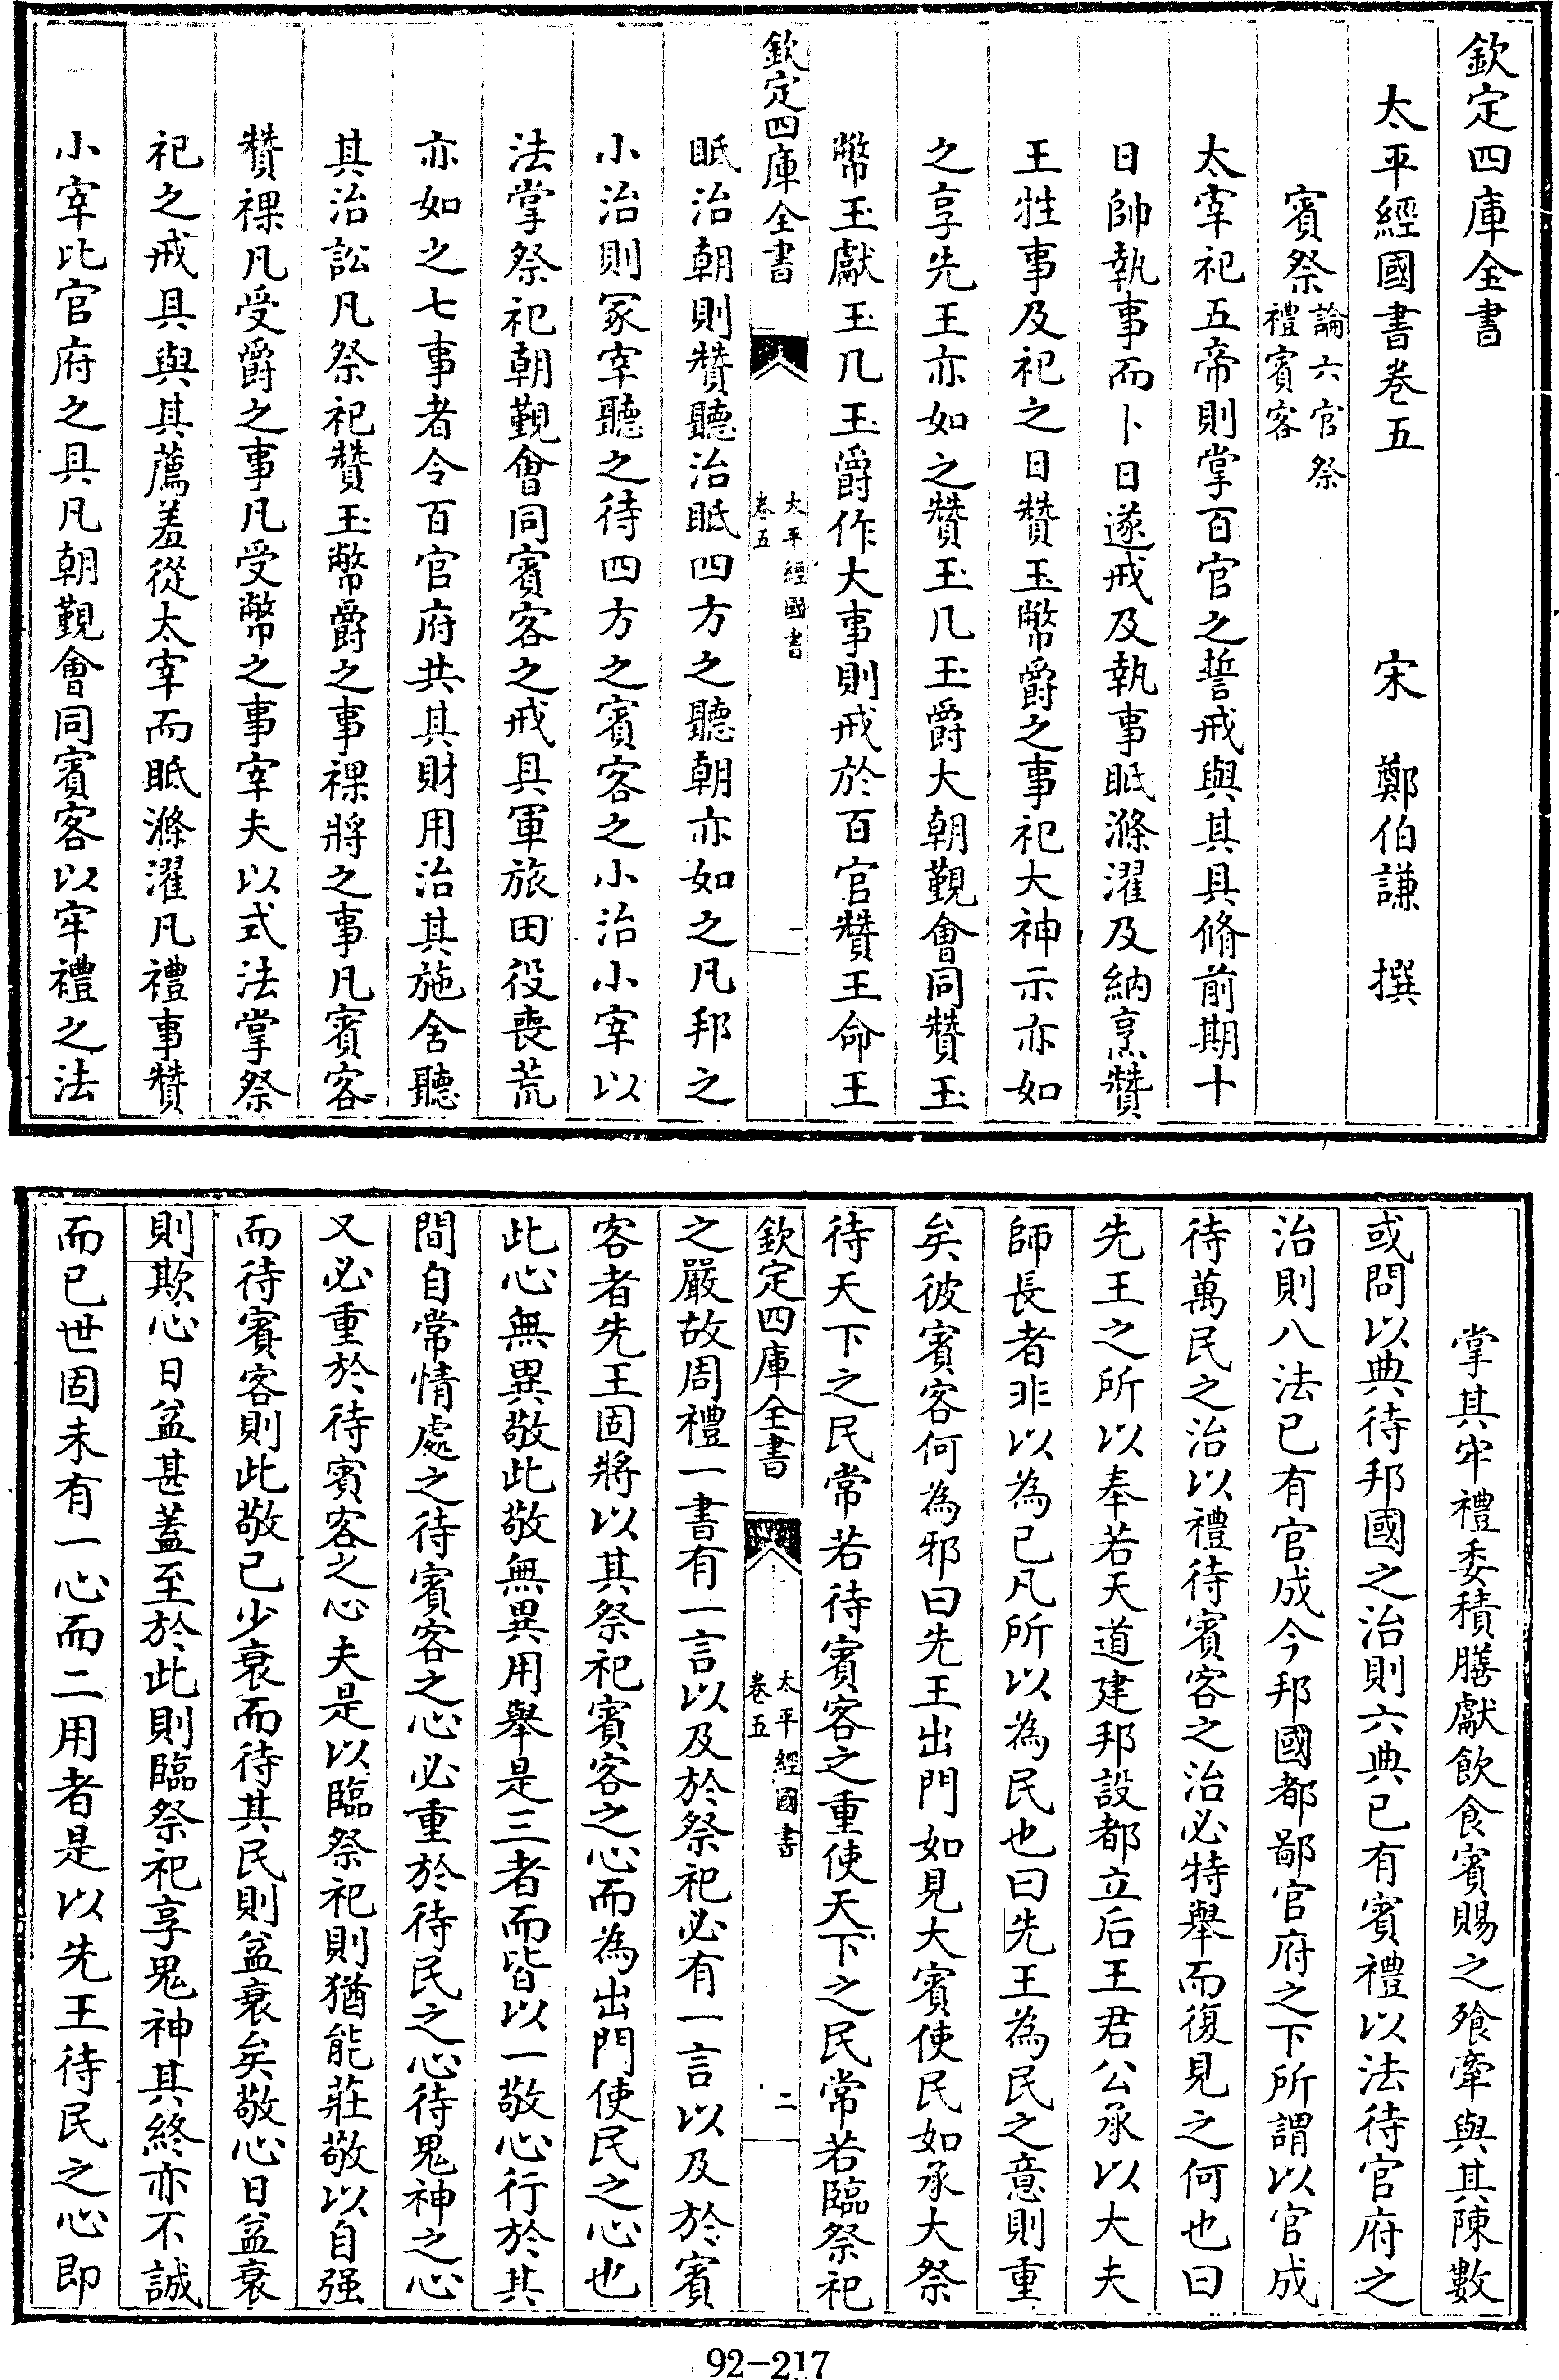 欽定四庫全書
太平經國書卷五
宋 鄭伯謙 撰
賓祭論六官祭
禮賓客
太宰祀五帝則掌百官之誓戒與其具脩前期十
日帥執事而卜日遂戒及執事眡滌濯及納烹贊
王牲事及祀之日贊玉幣爵之事祀大神示亦如
之享先王亦如之贊玉几玉爵大朝覲會同贊玉
幣玉獻玉几玉爵作大事則戒於百官贊王命王
欽定四庫全書
太平經國書
卷五
一
眡治朝則贊聽治眡四方之聽朝亦如之凡邦之
小治則冢宰聽之待四方之賓客之小治小宰以
法掌祭祀朝覲會同賓客之戒具軍旅田役喪荒
亦如之七事者令百官府共其財用治其施舍聽
其治訟凡祭祀贊玉幣爵之事祼將之事凡賓客
贊祼凡受爵之事凡受幣之事宰夫以式法掌祭
祀之戒具與其薦羞從太宰而眡滌濯凡禮事贊
小宰比官府之具凡朝覲會同賓客以牢禮之法
掌其牢禮委積膳獻飲食賓賜之飱牽與其陳數
或問以典待邦國之治則六典已有賓禮以法待官府之
治則八法已有官成今邦國都鄙官府之下所謂以官成
待萬民之治以禮待賓客之治必特舉而復見之何也曰
先王之所以奉若天道建邦設都立后王君公承以大夫
師長者非以為已凡所以為民也曰先王為民之意則重
矣彼賓客何為邪曰先王出門如見大賓使民如承大祭
待天下之民常若待賓客之重使天下之民常若臨祭祀
欽定四庫全書
太平經國書
卷五
二
之嚴故周禮一書有一言以及於祭祀必有一言以及於賓
客者先王固將以其祭祀賓客之心而為出門使民之心也
此心無異敬此敬無異用舉是三者而皆以一敬心行於其
間自常情處之待賓客之心必重於待民之心待鬼神之心
又必重於待賓客之心夫是以臨祭祀則猶能莊敬以自强
而待賓客則此敬已少衰而待其民則益衰矣敬心日益衰
則欺心日益甚蓋至於此則臨祭祀享鬼神其終亦不誠
而已世固未有一心而二用者是以先王待民之心即
92-217